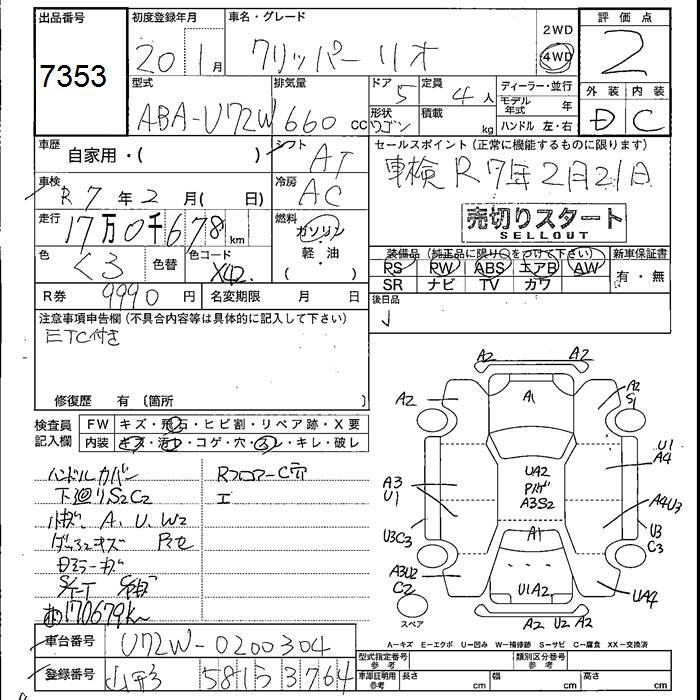 出品番号 初度登録年月 車名・グレード 2WD 4WD 評価点
7353 20 1月 クリッパー リオ 2
型式 排気量 ドア 定員 ディーラー・並行 外装 内装
ABA-U72W 660 cc 5 4人 モデル年式 年 D C
形状 ワゴン 積載 kg ハンドル 左・右
車歴 自家用・( ) シフト AT セールスポイント(正常に機能するものに限ります)
車検 R7年2月( 日) 冷房 AC 車検 R7年2月21日
走行 17万0千678km 燃料 ガソリン 売切りスタート
軽・油 SELLOUT
( )
色 くろ 色替 色コード X42 装備品(純正品に限り○をつけて下さい) 新車保証書
PS PW ABS エアB AW 有・無
SR ナビ TV カワ
R券 9990円 名変期限 月 日 後日品
注意事項申告欄(不具合内容等は具体的に記入して下さい)
ETC付き
修復歴 有〔箇所 〕
検査員記入欄 FW キズ・飛石・ヒビ割・リペア跡・X要
内装 キズ・汚レ・コゲ・穴・スレ・キレ・破レ
ハンドルカバー RフロアーC穴
下廻りS2C2 エ
小キズ A、U、W2
ダッシュキズ
Dミラーキズ
170679k
A2 A2
A2 A1 A2 S1
U1 A4
A3 U1 UA2 A3S2 A4U3
U3C3 A1 U3 C3
A3U2 C2 U1A2 UA4
スペア A2 U2 A2
A-キズ E-エクボ U-凹み W-補修跡 S-サビ C-腐食 XX-交換済
車台番号 U72W-0200304 型式指定番号 参考 類別区分番号 参考
登録番号 581 3764 車庫証明用 参考 長さ cm 幅 cm 高さ cm